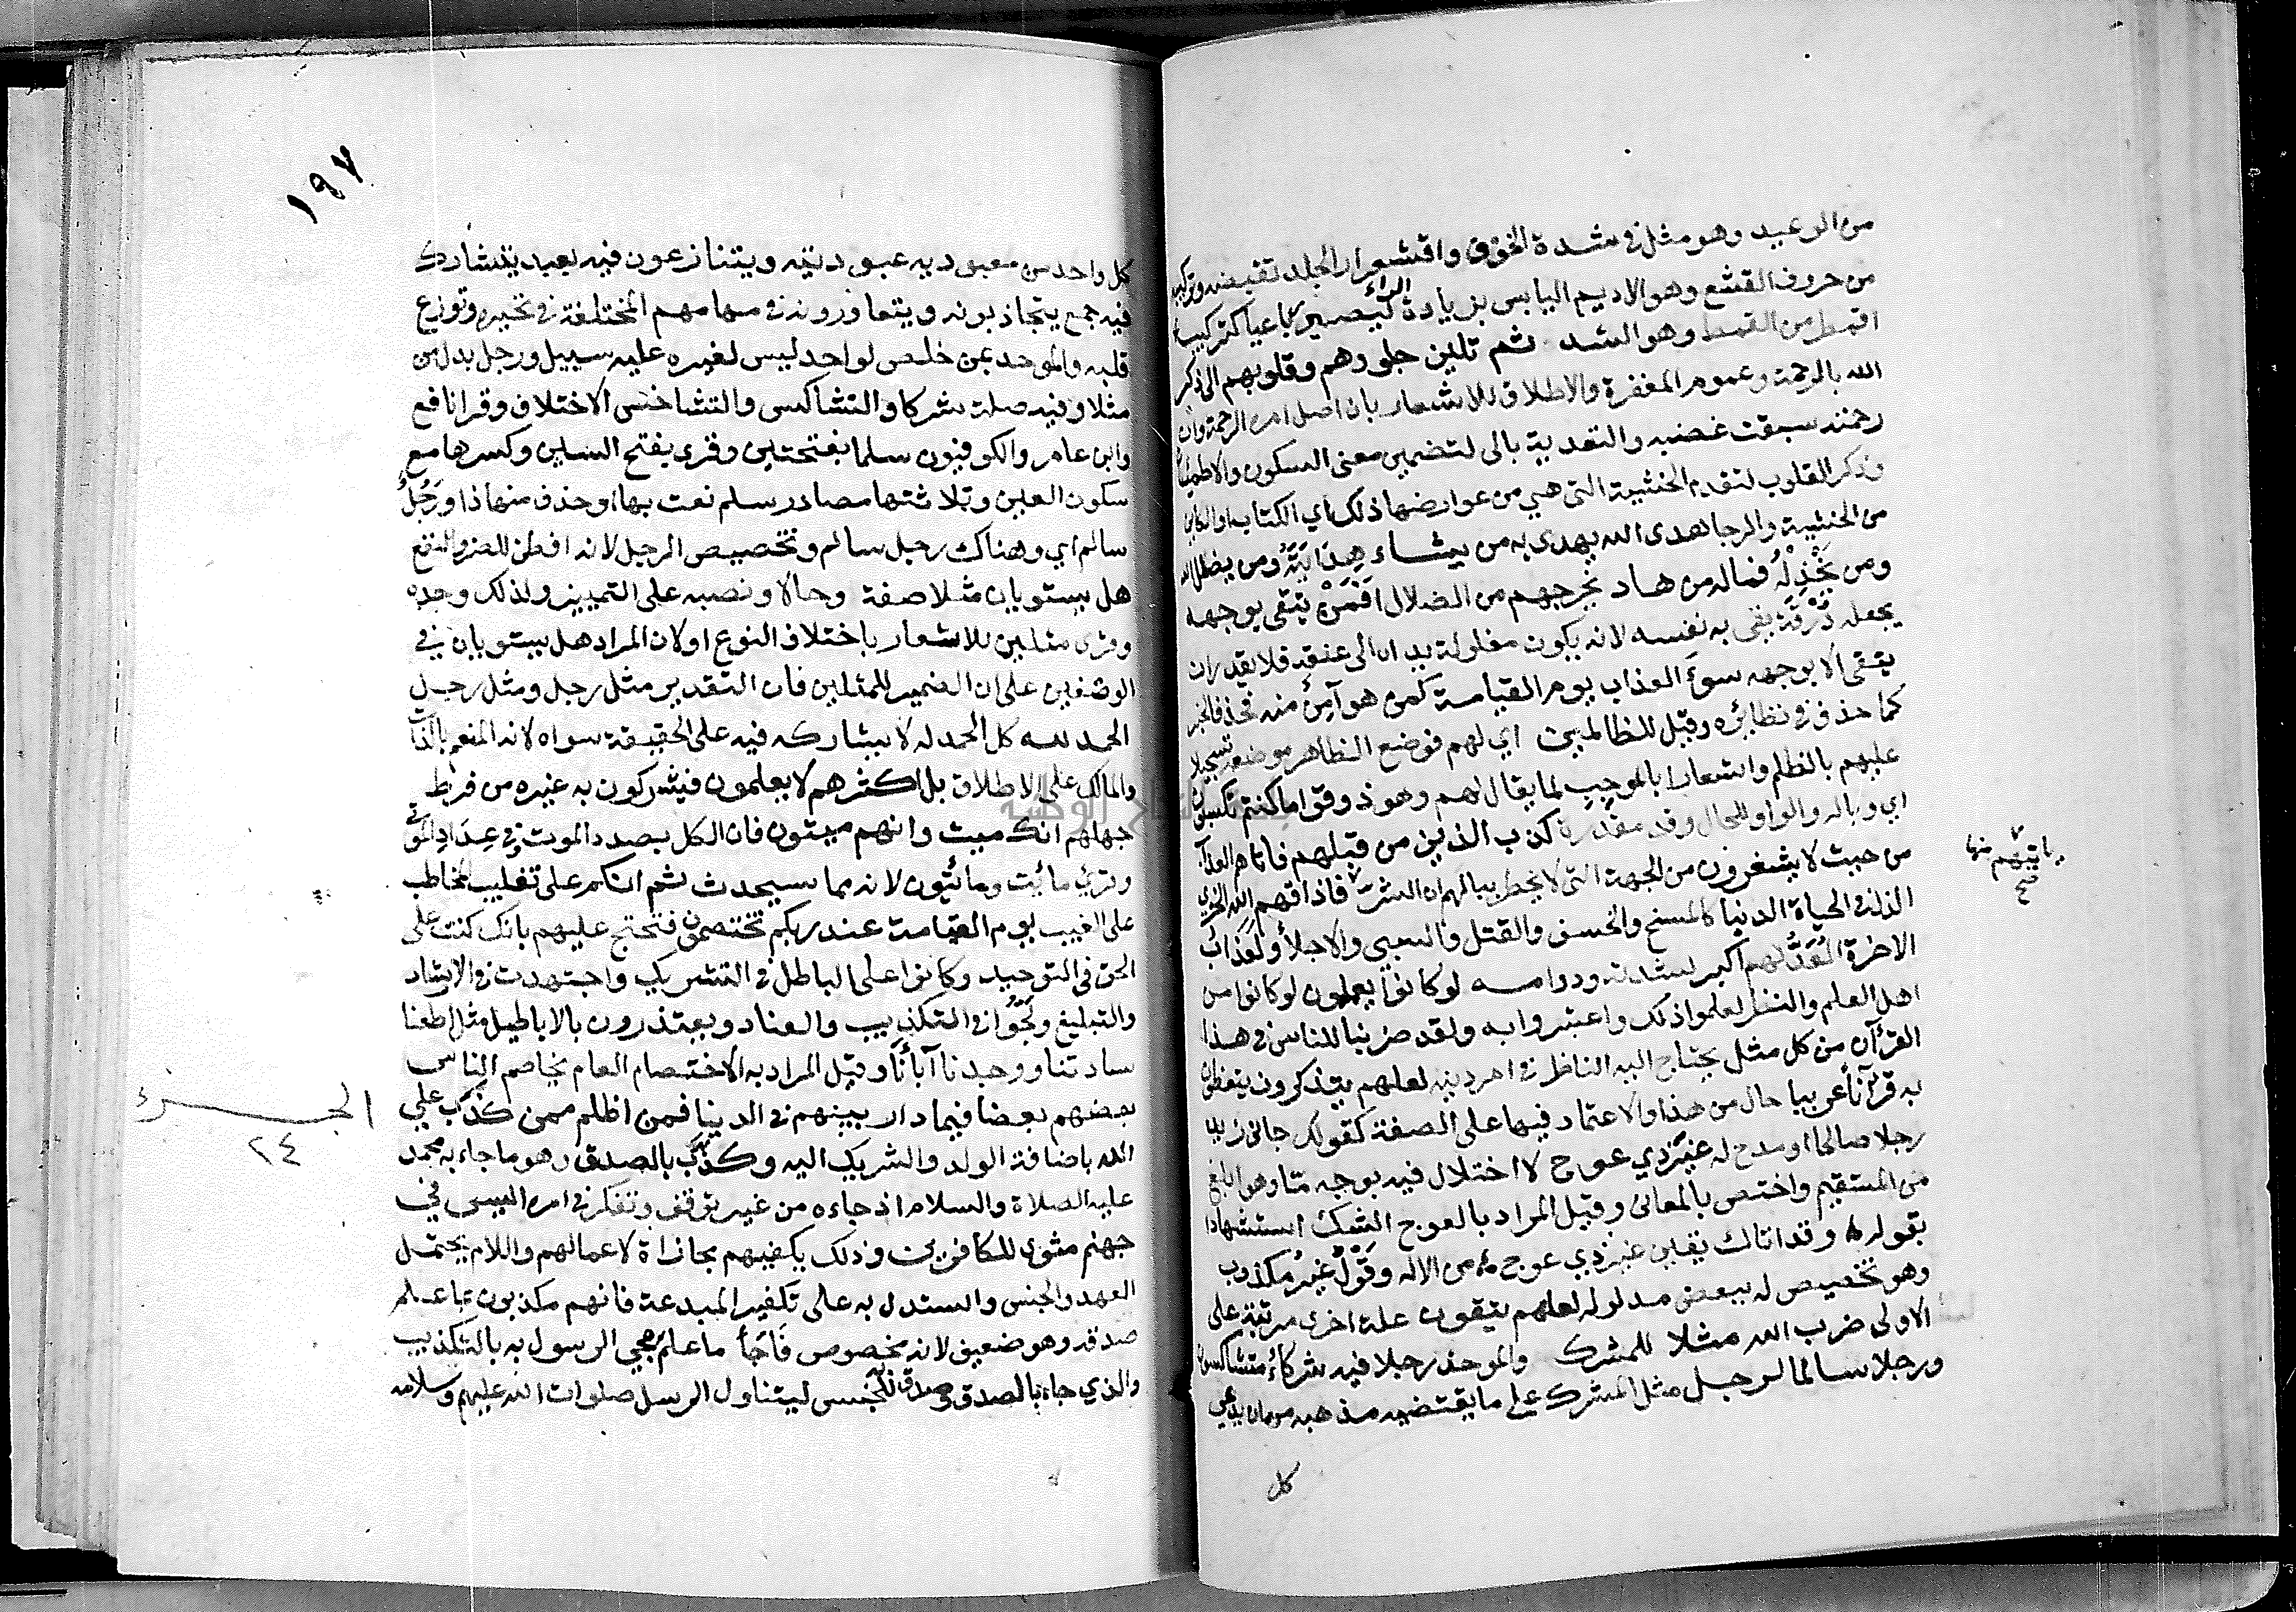 من الوعيد وهو مثل في شدة الخوف واقشعرار الجلد تقبضه وتركيبه
من حروف القشع وهو الاديم اليابس بزيادة الراء ليصير رباعيا كتركيب
اقمطر من القمط وهو الشد ثم تلين جلودهم وقلوبهم الى ذكر
الله بالرحمة وعموم المغفرة والاطلاق للاشعار بان اصل امره الرحمة وان
رحمته سبقت غضبه والتعدية بالى لتضمين معنى السكون والاطمئنا
وذكر القلوب لتقدم الخشية التي هي من عوارضها ذلك اي الكتاب او الكاين
من الخشية والرجا هدى الله يهدي به من يشاء هِدَايَتَهُ ومن يضلل الله
ومن يَخْذِلْهُ فماله من هاد يخرجهم من الضلال اَفَمَنْ يتقي بوجهه
يجعله دَرْقَةً يقي به نفسه لانه يكون مغلولة يداه الى عنقه فلا يقدر ان
يتقى الا بوجهه سوءَ العذاب يوم القيامة كمن هو آمِنٌ منه فحذف الخبر
كما حذف في نظائره وقيل للظالمين اي لهم فوضع الظاهر موضعه تسجيلا
عليهم بالظلم واشعارا بالموجب لما يقال لهم وهو ذوقوا ما كنتم تكسبون
اي وباله والواو للحال وقد مقدرة كذب الذين من قبلهم فاتاهم العذاب
من حيث لا يشعرون من الجهة التي لا يخطر ببالهم ان الشر فاذاقهم الله الخزي
ياتيهم منها
صح
الذل في الحياة الدنيا كالمسخ والخسف والقتل والسبي والاجلأ ولعَذَابُ
الاخرة المُعَدُّ لهم اكبر لشدته ودوامه لو كانوا يعلمون لو كانوا من
اهل العلم والنظر لعلموا ذلك واعتبروا به ولقد ضربنا للناس في هذا
القرآن من كل مثل يحتاج اليه الناظر في امر دينه لعلهم يتذكرون يتعظون
به قرآناً عربيا حال من هذا والاعتماد فيها على الصفة كقولك جاني زيد
رجلا صالحا او مدح له غيرَ ذي عوج لا اختلال فيه بوجه مّا وهو ابلغ
من المستقيم واختص بالمعاني وقيل المراد بالعوج الشك استشهادا
بقوله وقد اتاك يقين غير ذي عوج من الاله وقَوْلٌ غيرُ مكذوب
وهو تخصيص له ببعض مدلوله لعلهم يتقون علة اخرى مرتبة على
الاولى ضرب الله مثلا للمشرك والموحد رجلا فيه شركاءُ متشاكسون
ورجلا سالما لرجل مثل المشرك على ما يقتضيه مذهبه من ان يدعي
كل
١٩٧
كل واحد من معبوديه عبوديته ويتنازعون فيه بعبد يتشارك
فيه جمع يتجاذبونه ويتعاورونه في مهامهم المختلفة في تحيره وتوزع
قلبه والموحد بمن خلص لواحد ليس لغيره عليه سبيل ورجل بدل من
مثلا وفيه صلة شركا والتشاكس والتشاخص الاختلاف وقرا نافع
وابن عامر والكوفيون سلما بفتحتين وقرى بفتح السين وكسرها مع
سكون العين وثلاثتها مصادر سلم نعت بها او حذف منها ذا ورَجُلٌ
سالم اي وهناك رجل سالم وتخصيص الرجل لانه افطن للضر والنفع
هل يستويان مثلا صفة وحالا ونصبه على التمييز ولذلك وحده
وقرى مثلين للاشعار باختلاف النوع او لان المراد هل يستويان في
الوصفين على ان الضمير للمثلين فان التقدير مثل رجل ومثل رجل
الحمد لله كل الحمد له لا يشاركه فيه على الحقيقة سواه لانه المنعم بالذات
والمالك على الاطلاق بل اكثرهم لا يعلمون فيشركون به غيره من فرط
جهلهم انك ميت وانهم ميتون فان الكل بصدد الموت وفي عِدَادِ الموتى
وقري مائت ومائتون لانه مما سيحدث ثم انكم على تغليب المخاطب
على الغيب يوم القيامة عند ربكم تختصمون فتحتج عليهم بانك كنت على
الحق في التوحيد وكانوا على الباطل في التشريك واجتهدت في الارشاد
والتبليغ ولَجُّوا في التكذيب والعناد ويعتذرون بالاباطيل مثل اطعنا
سادتنا ووجدنا آبأنَا وقيل المراد به الاختصام العام يخاصم الناس
بعضهم بعضا فيما دار بينهم في الدينا فمن اظلم ممن كذَب على
الجزء
٢٤
الله باضافة الولد والشريك اليه وكذّب بالصدق وهو ما جاء به محمد
عليه الصلاة والسلام اذ جاءه من غير توقف وتفكر في امره اليس في
جهنم مثوى للكافرين وذلك يكفيهم مجازاة لاعمالهم واللام يحتمل
العهد والجنس واستدل به على تكفير المبدعة فانهم مكذبون بما علم
صدقه وهو ضعيف لانه مخصوص فَاجَأ ما علم مجي الرسول به بالتكذيب
والذي جاء بالصدق وصدق به للجنس ليتناول الرسل صلوات الله عليهم وسلامه